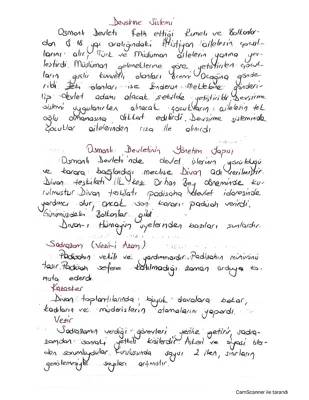 Devşirme Sistemi
Osmanlı Devleti feth ettiği Rumeli ve Balkanlar-
dan 8 18 yaş aralığındaki Hristiyan ailelerin çocuk-
larını alır, Türk ve Müslüman ailelerin yanına yer-
leştirdi. Müslüman geleneklerine göre yetiştirilen çocuk-
ların güçlü kuvvetli olanları Yeniçeri Ocağına gönde-
rildi Zeki olanları ise Enderun Mektebine gönderi-
lip devlet adamı olacak şekilde yetiştirildi. Devşirme
sistemi uygulanırken alınacak çocukların ailelerin tek
oğlu olmamasına dikkat edilirdi. Devşirme sisteminde
çocuklar ailelerinden rıza ile alınırdı
Osmanlı Devletinin Yönetim Yapısı
Osmanlı Devleti'nde devlet işlerinin görüldüğü
ve karara bağlandığı meclise Divan adı verilmiştir
Divan teşkilatı ilk kez Orhan Bey döneminde ku-
rulmuştur Divan teşkilatı padişaha devlet idaresinde
yardımcı olur, ancak son kararı padişah verirdi.
Günümüzdeki gibi
Divan-ı Hümayun üyelerinden bazıları şunlardır.
Sadrazam (Vezir-i Azam)
Padişahın vekili ve yardımcısıdır. Padişahın mührünü
taşır. Padişah sefere katılmadığı zaman orduya ko-
muta ederdi.
Kazasker
Divan toplantılarında büyük davalara bakar,
kadıların ve müderrislerin atamalarını yapardı.
Vezir
Sadrazamın verdiği görevleri yerine getirir, sadra-
zamdan sonraki yetkili kişilerdir. Askeri ve siyasi işler-
den sorumluydular. Kuruluşunda sayısı 2 iken, sınırların
genişlemesiyle sayıları artmıştır.
CamScanner ile tarandı